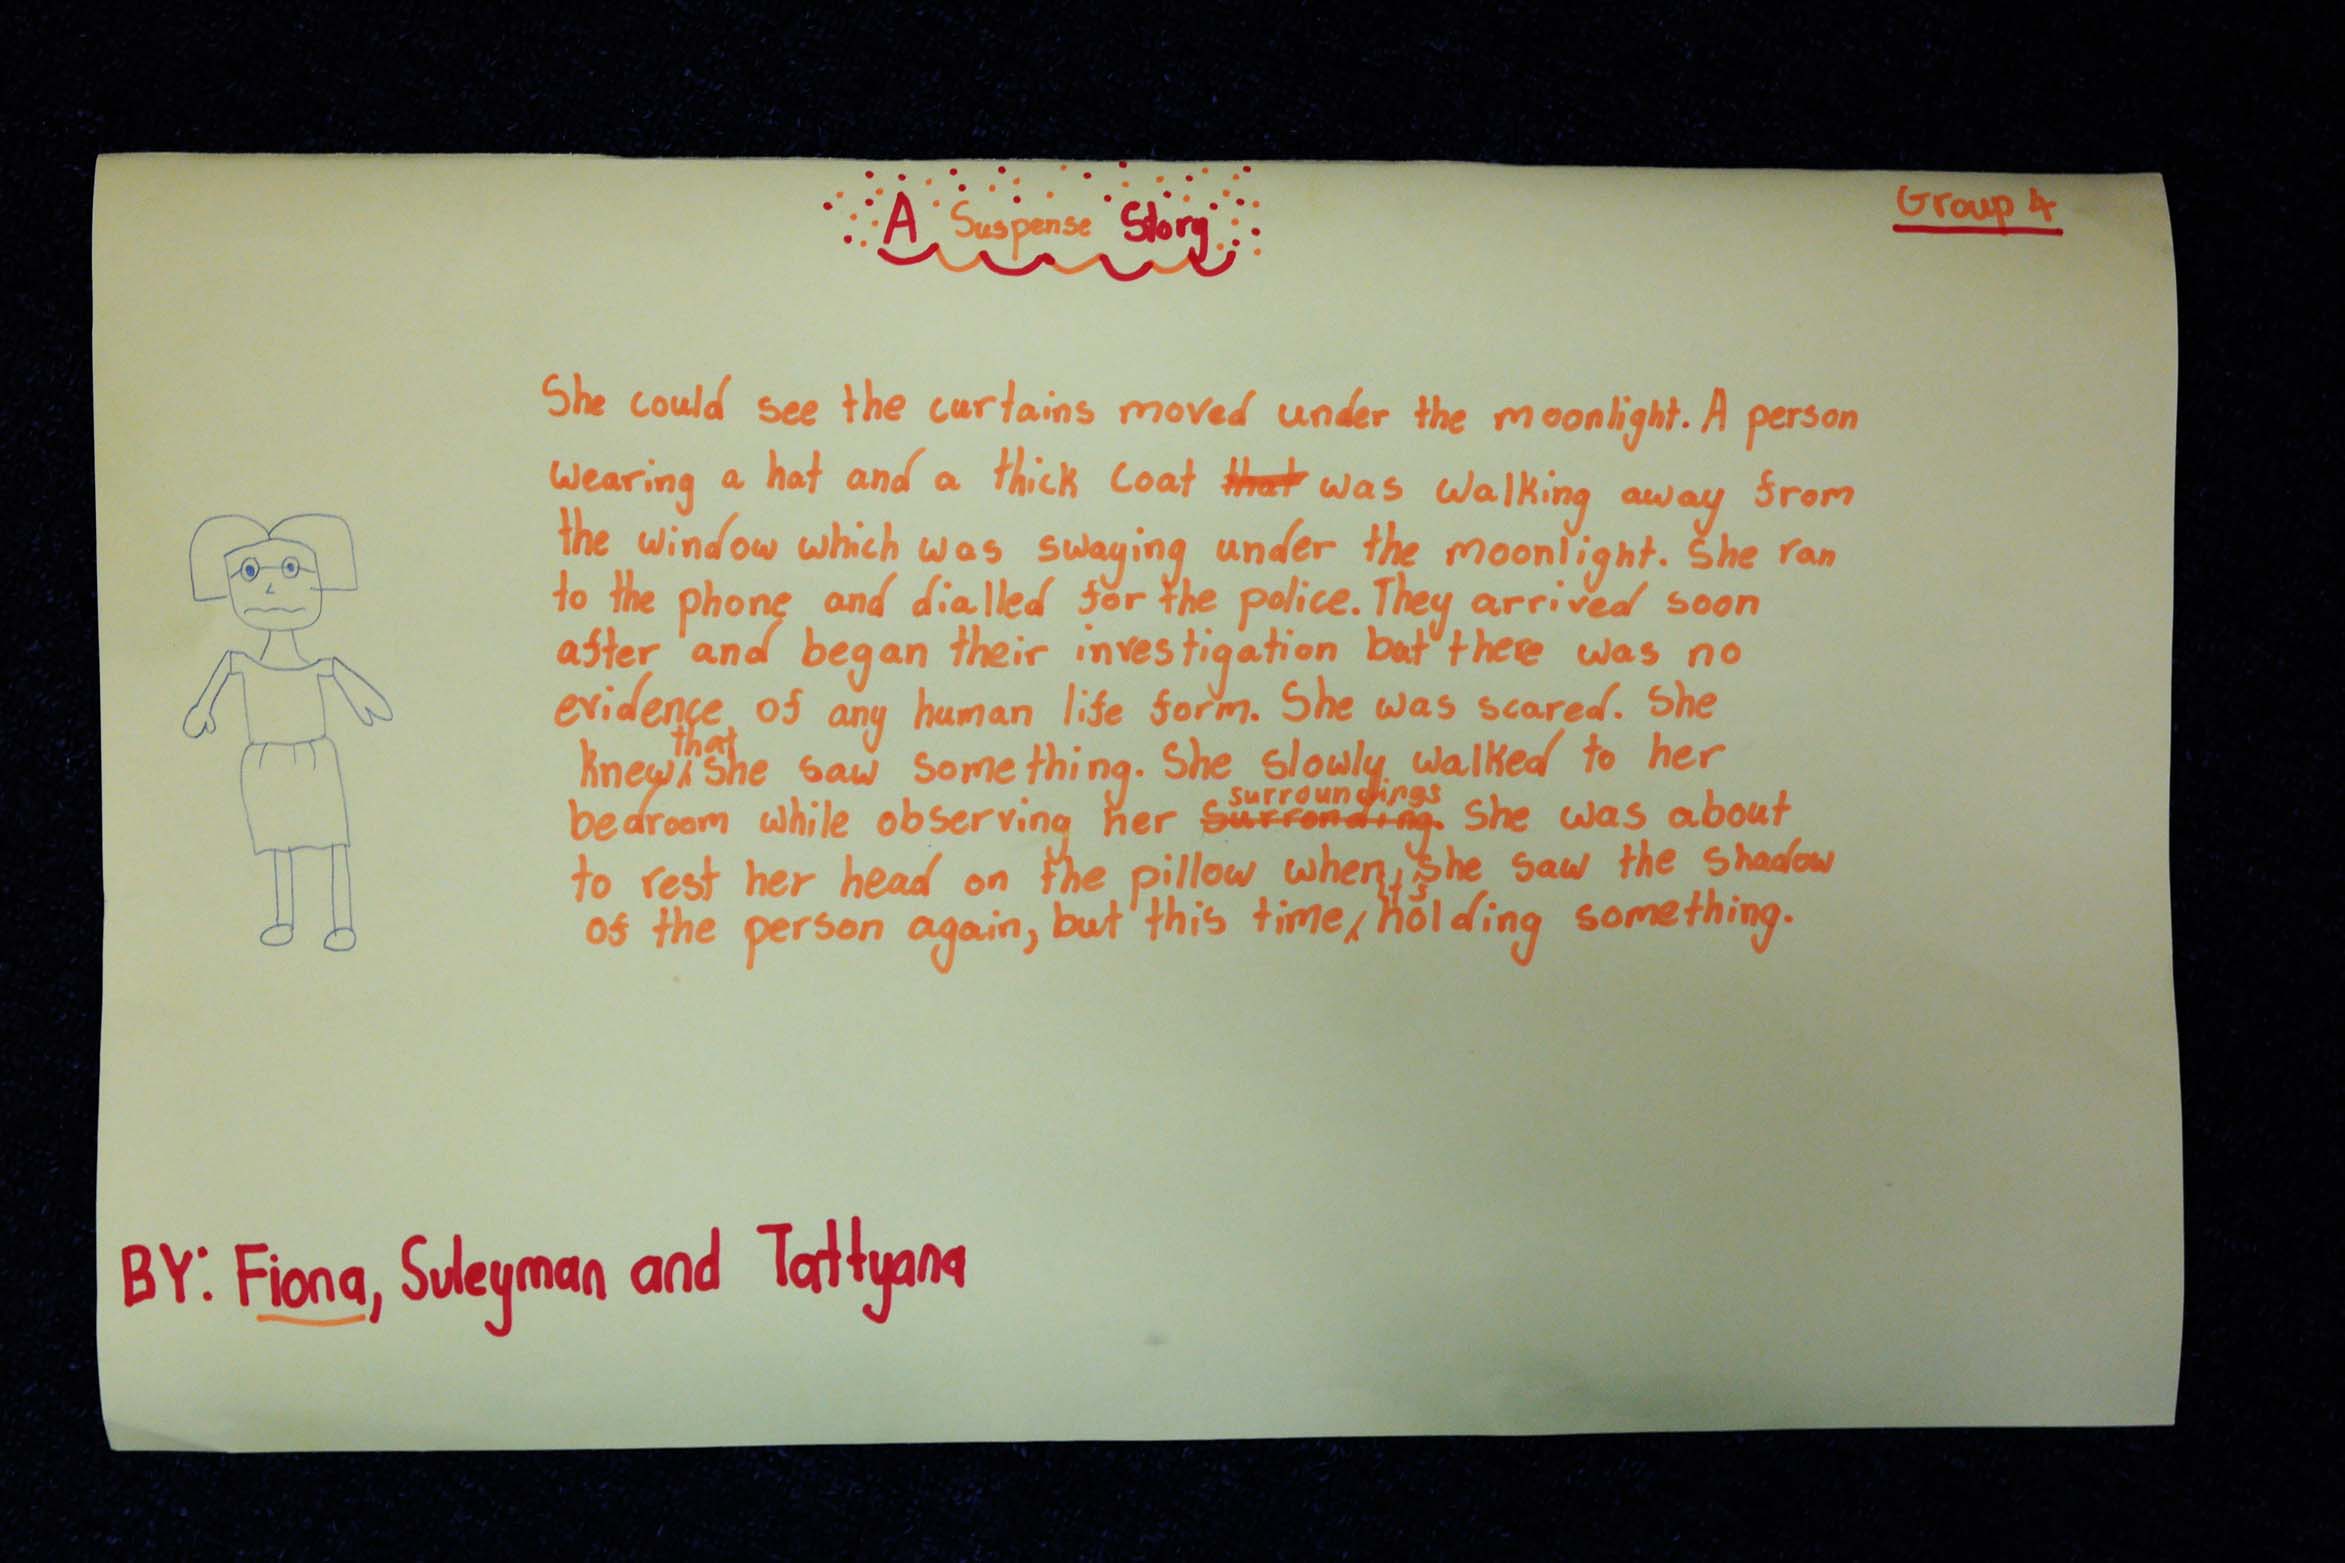 A Suspense Story
Group 4
She could see the curtains moved under the moonlight. A person
wearing a hat and a thick coat that was walking away from
the window which was swaying under the moonlight. She ran
to the phone and dialled for the police. They arrived soon
after and began their investigation but there was no
evidence of any human life form. She was scared. She
knew that she saw something. She slowly walked to her
bedroom while observing her surronding. surroundings She was about
to rest her head on the pillow when, she saw the shadow
of the person again, but this time, it's holding something.
BY: Fiona, Suleyman and Tattyana